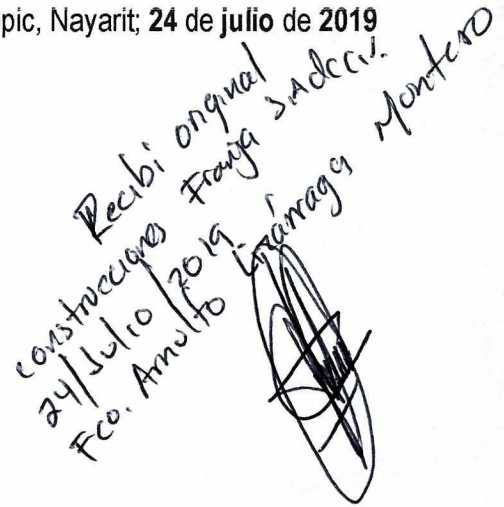 pic, Nayarit; 24 de julio de 2019
Recibi original
construcciones Franja S.A de C.V.
24/Julio/2019
Fco. Arnulfo Lizárraga Montero